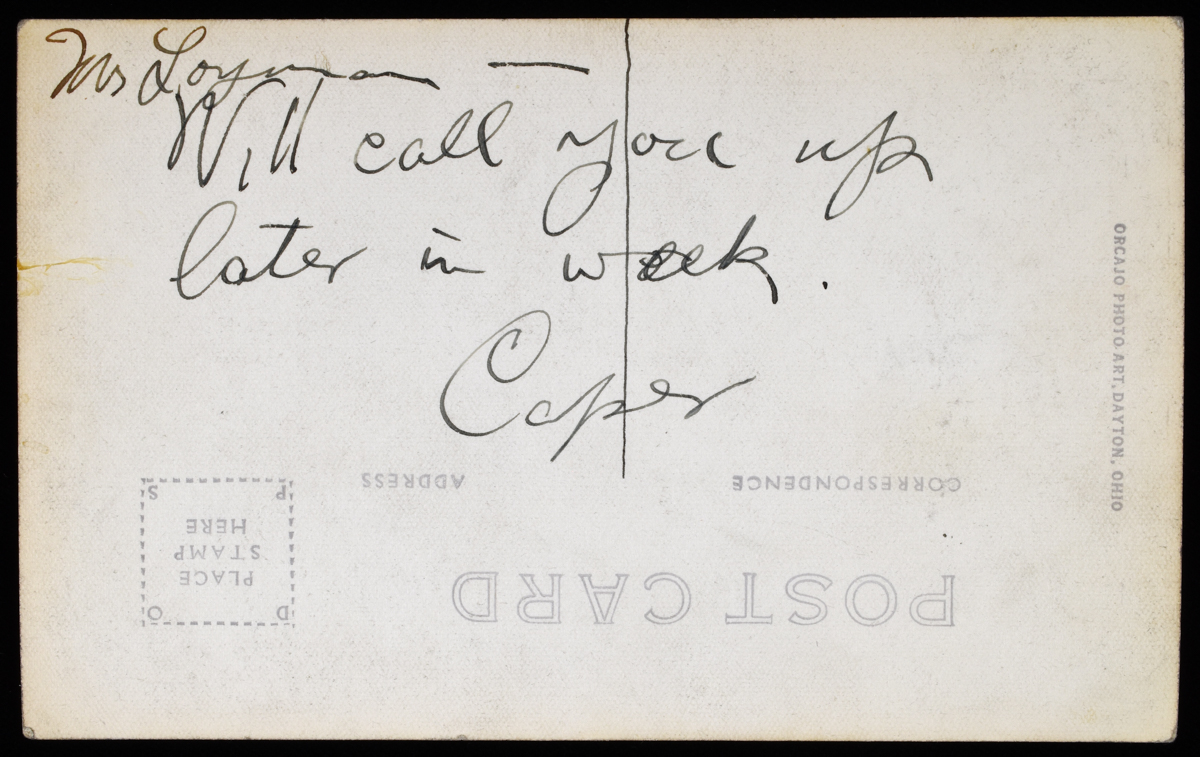 Mrs Loyman —
Will call you up
later in week.
Caper
ORCAJO PHOTO ART, DAYTON, OHIO
CORRESPONDENCE
ADDRESS
POST CARD
D O
PLACE
STAMP
HERE
P S